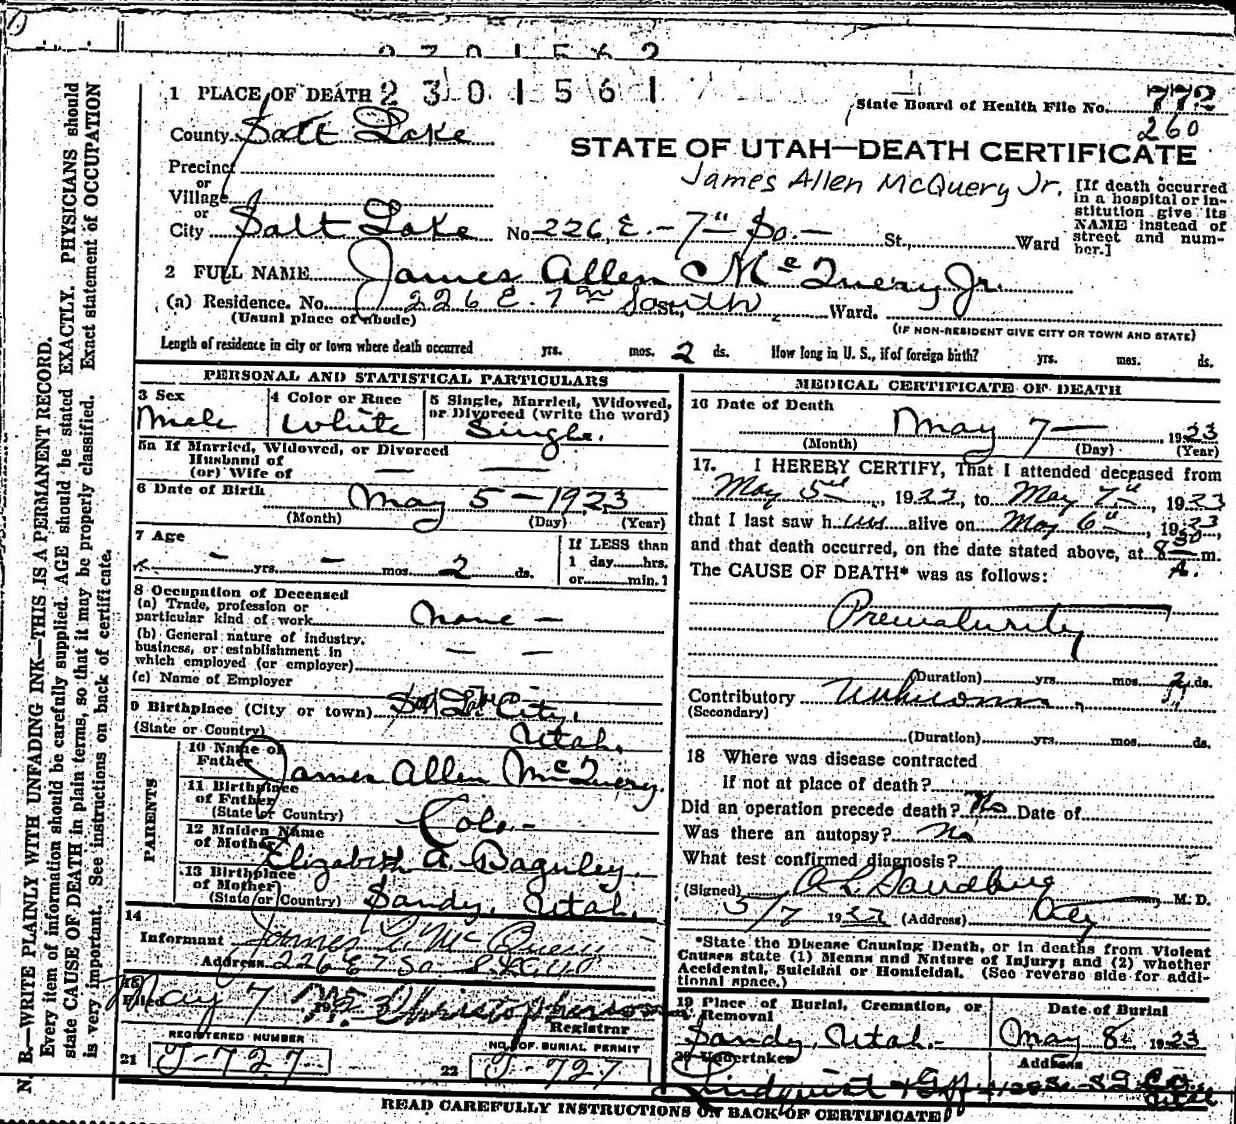 2 3 0 1 5 6 2
1 PLACE OF DEATH 2 3 0 1 5 6 1
State Board of Health File No. 772
260
County Salt Lake
STATE OF UTAH—DEATH CERTIFICATE
Precinct
or
James Allen McQuery Jr.
Village
or
City Salt Lake No 226 E. - 7" So. - St., Ward
[If death occurred
in a hospital or in-
stitution give its
NAME instead of
street and num-
ber.]
2 FULL NAME James Allen McQuery Jr.
(a) Residence. No. 226 E. 7th South St., Ward.
(Usual place of abode)
(IF NON-RESIDENT GIVE CITY OR TOWN AND STATE)
Length of residence in city or town where death occurred yrs. mos. 2 ds. How long in U. S., if of foreign birth? yrs. mos. ds.
PERSONAL AND STATISTICAL PARTICULARS
3 Sex
Male
4 Color or Race
White
5 Single, Married, Widowed,
or Divorced (write the word)
Single.
5a If Married, Widowed, or Divorced
Husband of
(or) Wife of — —
6 Date of Birth May 5 - 1923
(Month) (Day) (Year)
7 Age
— yrs. — mos. 2 ds.
If LESS than
1 day hrs.
or min.?
8 Occupation of Deceased
(a) Trade, profession or
particular kind of work None —
(b) General nature of industry,
business, or establishment in
which employed (or employer) — —
(c) Name of Employer
9 Birthplace (City or town) Salt Lake City,
(State or Country) Utah.
PARENTS
10 Name of
Father James Allen McQuery.
11 Birthplace
of Father
(State or Country) Colo. -
12 Maiden Name
of Mother Elizabeth A. Bagnley.
13 Birthplace
of Mother
(State or Country) Sandy, Utah.
14
Informant James McQuery
Address 226 E 7 So
15
Filed May 7 Christopherson
Registrar
REGISTERED NUMBER
21 J-727
NO. OF BURIAL PERMIT
22 J-727
MEDICAL CERTIFICATE OF DEATH
16 Date of Death
May 7 — 1923
(Month) (Day) (Year)
17. I HEREBY CERTIFY, That I attended deceased from
May 5, 1923, to May 7", 1923
that I last saw him alive on May 6", 1923,
and that death occurred, on the date stated above, at 8 30 m.
A.
The CAUSE OF DEATH* was as follows:
Prematurity
(Duration) yrs. mos. 2 ds.
Contributory Unknown.
(Secondary)
(Duration) yrs. mos. ds.
18 Where was disease contracted
if not at place of death?
Did an operation precede death? No Date of
Was there an autopsy? No
What test confirmed diagnosis?
(Signed) M. D.
5/7 1923 (Address) City
*State the Disease Causing Death, or in deaths from Violent
Causes state (1) Means and Nature of Injury; and (2) whether
Accidental, Suicidal or Homicidal. (See reverse side for addi-
tional space.)
19 Place of Burial, Cremation, or
Removal
Sandy, Utah.-
Date of Burial
May 8, 1923
20 Undertaker
Lindquist
Address
READ CAREFULLY INSTRUCTIONS ON BACK OF CERTIFICATE
N. B.—WRITE PLAINLY WITH UNFADING INK—THIS IS A PERMANENT RECORD.
Every item of information should be carefully supplied. AGE should be stated EXACTLY. PHYSICIANS should
state CAUSE OF DEATH in plain terms, so that it may be properly classified. Exact statement of OCCUPATION
is very important. See instructions on back of certificate.